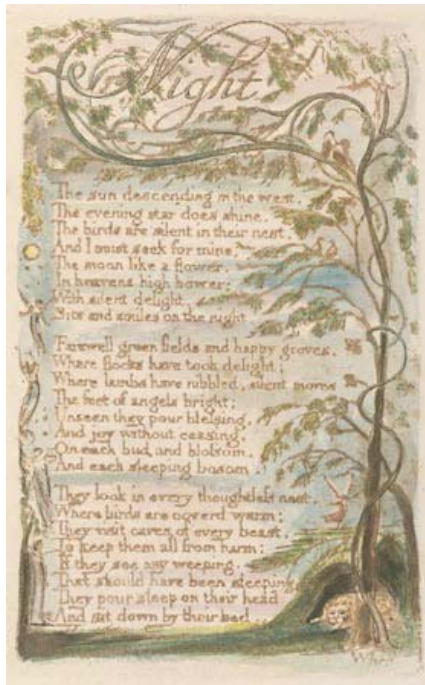 Night
The sun descending in the west.
The evening star does shine.
The birds are silent in their nest.
And I must seek for mine,
The moon like a flower,
In heavens high bower;
With silent delight,
Sits and smiles on the night
Farewell green fields and happy groves,
Where flocks have took delight;
Where lambs have nibbled, silent moves
The feet of angels bright;
Unseen they pour blessing,
And joy without ceasing,
On each bud and blossom,
And each sleeping bosom
They look in every thoughtless nest,
Where birds are coverd warm;
They visit caves of every beast,
To keep them all from harm:
If they see any weeping,
That should have been sleeping
They pour sleep on their head
And sit down by their bed